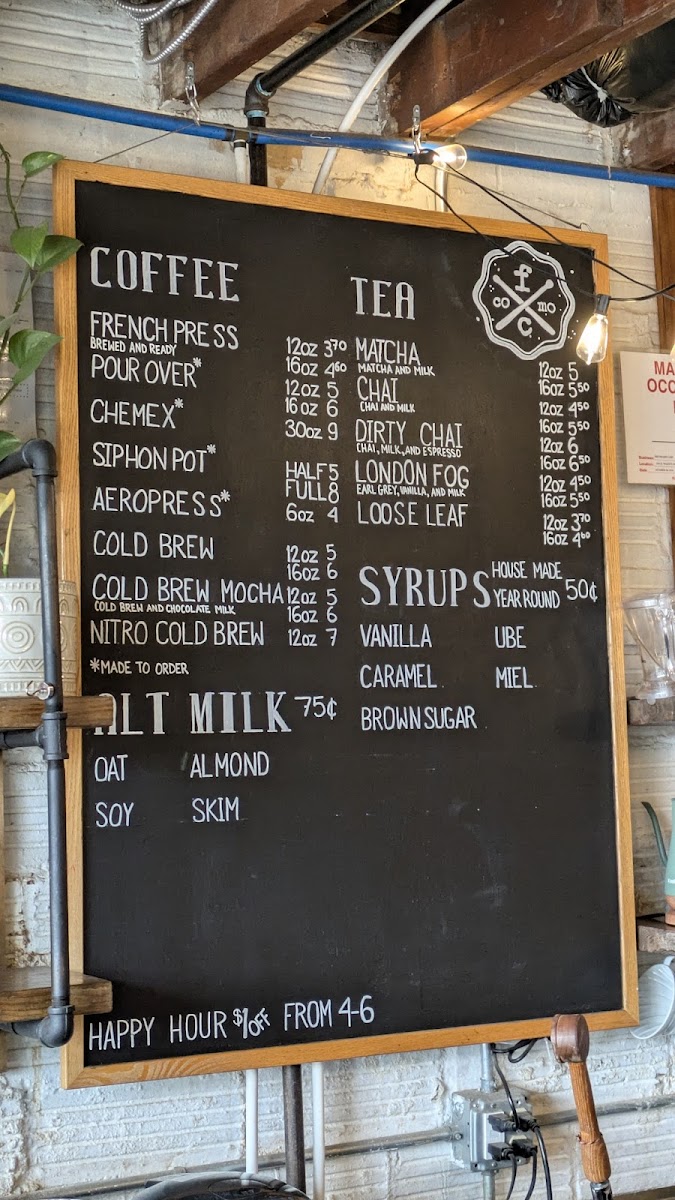 COFFEE
FRENCH PRESS 12oz 3⁷⁰
BREWED AND READY 16oz 4⁶⁰
POUR OVER* 12oz 5
16oz 6
CHEMEX* 30oz 9
SIPHON POT* HALF 5
FULL 8
AEROPRESS* 6oz 4
COLD BREW 12oz 5
16oz 6
COLD BREW MOCHA 12oz 5
COLD BREW AND CHOCOLATE MILK 16oz 6
NITRO COLD BREW 12oz 7
*MADE TO ORDER
ALT MILK 75¢
OAT ALMOND
SOY SKIM
TEA
MATCHA 12oz 5
MATCHA AND MILK 16oz 5⁵⁰
CHAI 12oz 4⁵⁰
CHAI AND MILK 16oz 5⁵⁰
DIRTY CHAI 12oz 6
CHAI, MILK, AND ESPRESSO 16oz 6⁵⁰
LONDON FOG 12oz 4⁵⁰
EARL GREY, VANILLA, AND MILK 16oz 5⁵⁰
LOOSE LEAF 12oz 3⁷⁰
16oz 4⁶⁰
f
co mo
c
SYRUPS HOUSE MADE
YEAR ROUND 50¢
VANILLA UBE
CARAMEL MIEL
BROWN SUGAR
HAPPY HOUR $1 OFF FROM 4-6